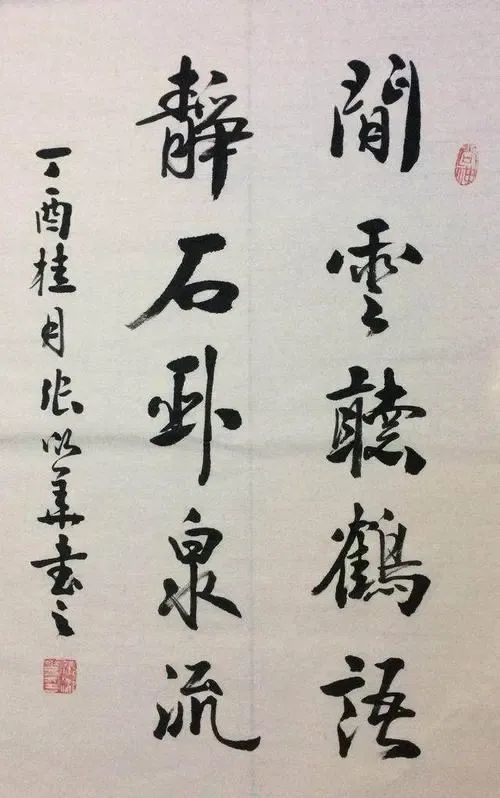 閒雲聽鶴語
靜石卧泉流
丁酉桂月张以華書之